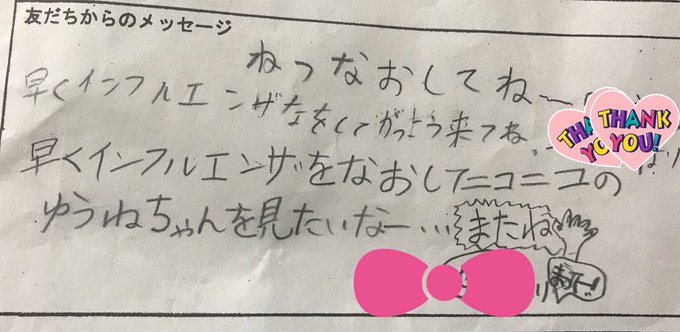 友だちからのメッセージ
ねつなおしてね〜
早くインフルエンザなをしてがっこう来てね。
早くインフルエンザをなおしてニコニコの
ゆうねちゃんを見たいなー…
またね
THANK YOU!